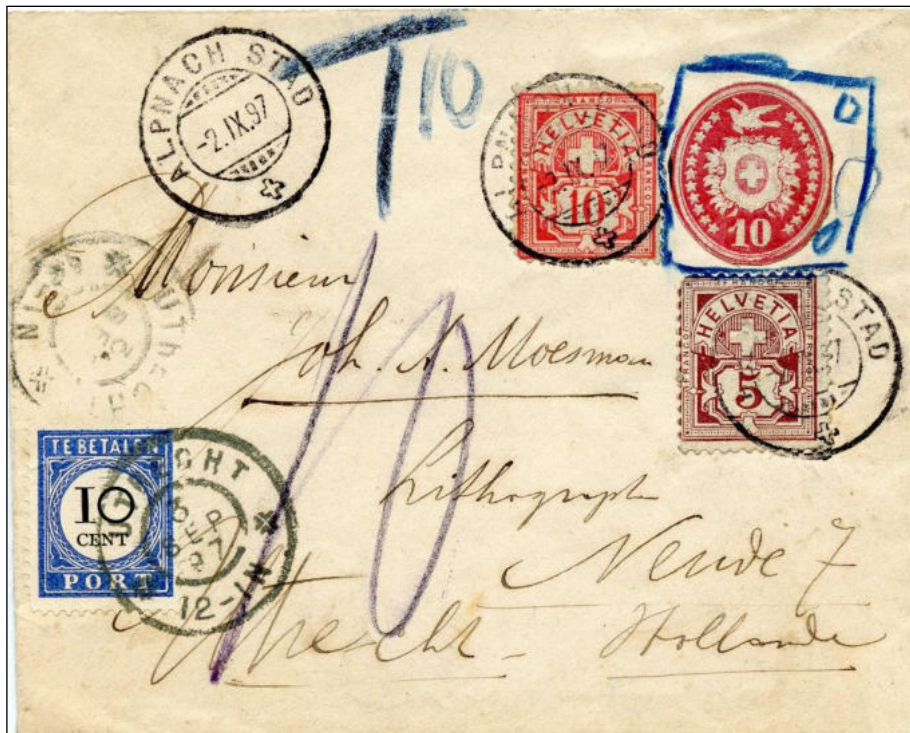 ALPNACH STAD
-2.IX.97
T 10
FRANCO HELVETIA FRANCO
10
10
0
HELVETIA
FRANCO FRANCO
5
STAD
Monsieur
Joh. A. Moesman
Lithograph
Neude 7
Utrecht - Hollande
10
TE BETALEN
10
CENT
PORT
UTRECHT
SEP
97
12-1N